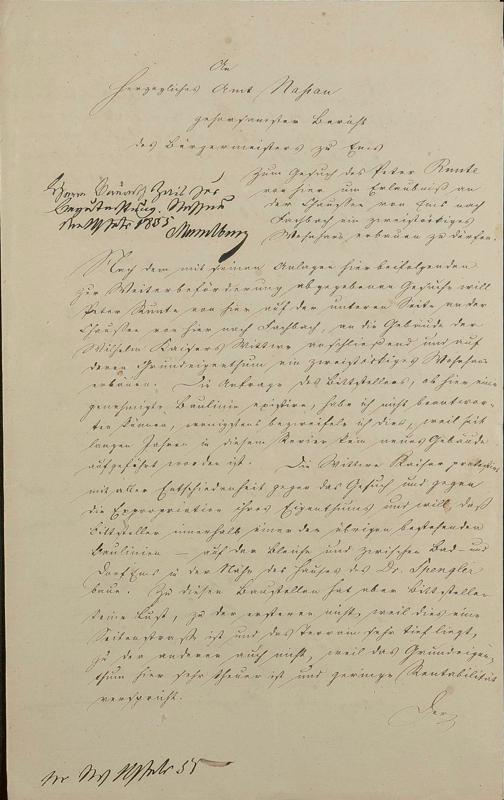 An
Herzogliches Amt Nassau
gehorsamster Bericht
des Bürgermeisters zu Ems
zum Gesuch des Peter Kunte
von hier um Erlaubniß an
der Chaussee von Ems nach
Fachbach ein zweistöckiges
Wohnhaus erbauen zu dürfen.
Herrn
Begutachtung. Nassau
den 1855
Nach dem mit seinen Anlagen hierbeifolgenden
zur Weiterbeförderung abgegebenen Gesuche will
Peter Kunte von hier auf der unteren Seite an der
Chaussee von hier nach Fachbach, an die Gebäude der
Wilhelm Kaisers Wittwe anschließend und auf
deren Grundeigenthum ein zweistöckiges Wohnhaus
erbauen. Die Anfrage des Bittstellers, ob hier eine
genehmigte Baulinie existire, habe ich nicht beantwor-
ten können, wenigstens bezweifele ich dies, weil seit
langen Jahren in diesem Revier kein neues Gebäude
aufgeführt worden ist. Die Wittwe Kaiser protestirt
mit aller Entschiedenheit gegen das Gesuch und gegen
die Expropriation ihres Eigenthums und will, daß
Bittsteller innerhalb einer der übrigen bestehenden
Baulinien — auf der Bleiche und zwischen Bad- und
Dorf Ems in der Nähe des Hauses des Dr. Spengler
baue. Zu diesen Baustellen hat aber Bittsteller
keine Lust, zu der ersteren nicht, weil dies eine
Seitenstraße ist und das Terrain sehr tief liegt,
zu der anderen auch nicht, weil das Grundeigen-
thum hier sehr theuer ist und geringe Rentabilität
verspricht.
Der
55